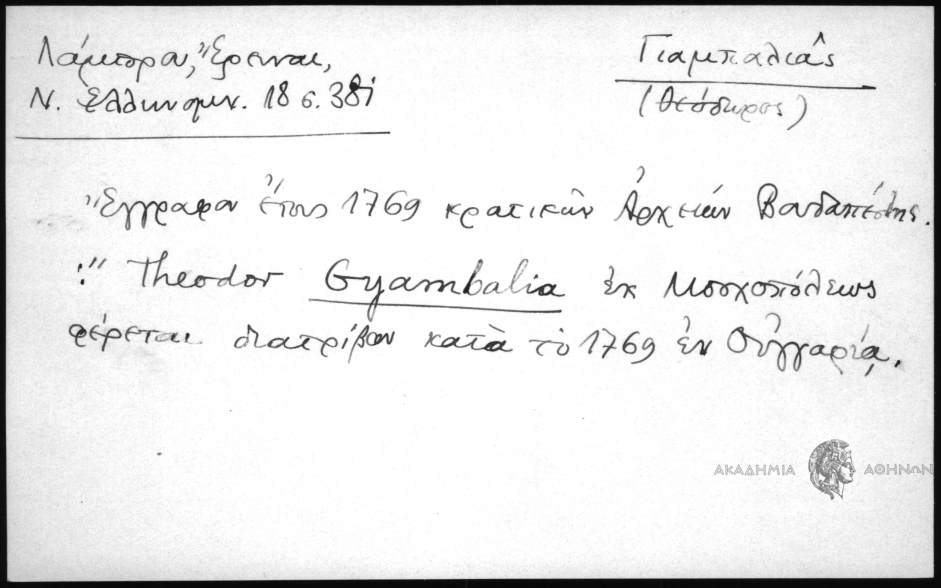 Λάμπρου, Ἔρευναι,
Ν. Ἑλληνομν. 18 σ. 381
Γιαμπαλιᾶς
(Θεόδωρος)
Ἔγγραφον ἔτους 1769 κρατικῶν Ἀρχείων Βουδαπέστης.
:" Theodor Gyambalia ἐκ Μοσχοπόλεως
φέρεται διατρίβων κατὰ τὸ 1769 ἐν Οὑγγαρίᾳ.
ΑΚΑΔΗΜΙΑ ΑΘΗΝΩΝ